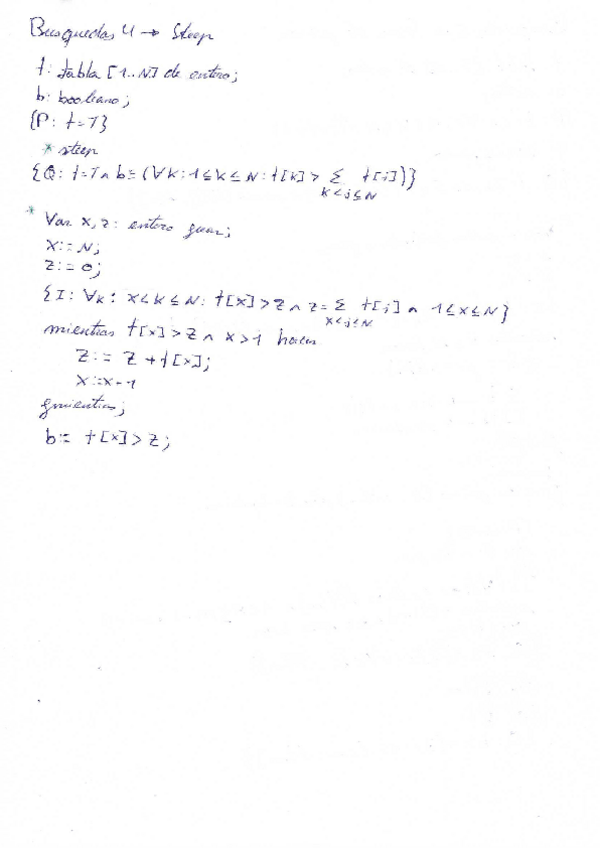 Busquedas 4 → Steep
t: tabla [1..N] de entero;
b: booleano;
{P: t=T}
* steep
{Q: t=T ∧ b≡(∀k:1≤k≤N: t[k]> Σ t[j])}
k<j≤N
*
Var x, z: entero fvar;
x:=N;
z:=0;
{I: ∀k: x<k≤N: t[k]>z ∧ z= Σ t[j] ∧ 1≤x≤N}
x<j≤N
mientras t[x]>z ∧ x>1 hacer
z:= z+t[x];
x:=x-1
fmientras;
b:= t[x]>z;